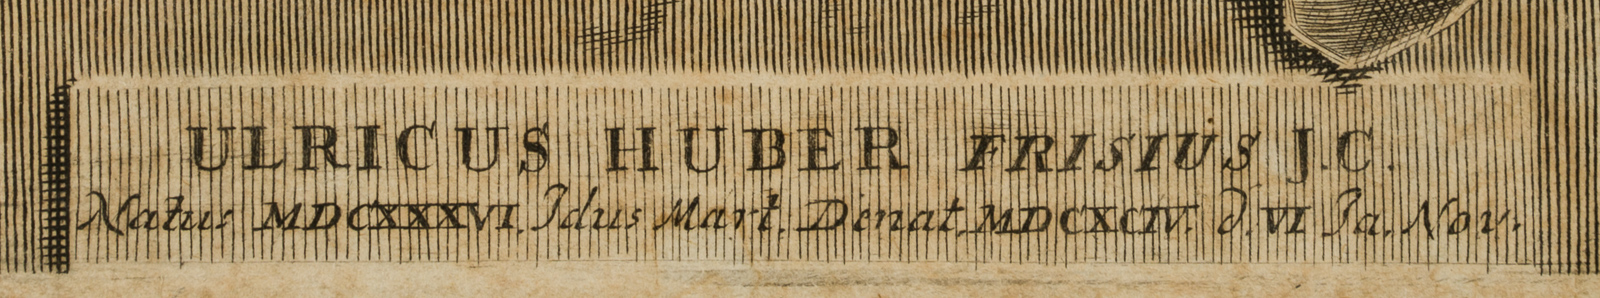 ULRICUS HUBER FRISIUS J.C.
Natus MDCXXXVI. Idus Mart. Denat. MDCXCIV. d. VI Ja. Nov.